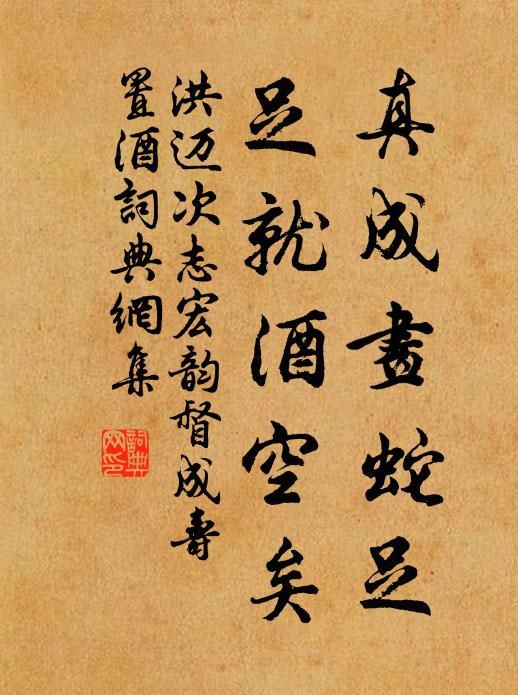 真成畫蛇足
足就酒空矣
洪迈次志宏韵督成壽
置酒詞典網集
詞典網印